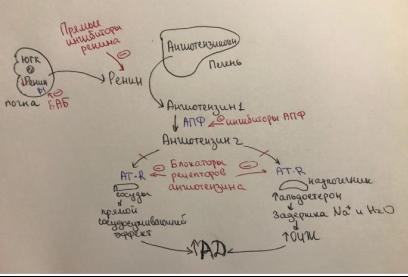 Прямые
ингибиторы
ренина
ЮГК
Ренин
β1
почка
БАБ
Ренин
Ангиотензиноген
Печень
Ангиотензин 1
АПФ
ингибиторы АПФ
Ангиотензин 2
AT-R
Блокаторы
рецепторов
ангиотензина
AT-R
сосуды
прямой
сосудосуживающий
эффект
надпочечник
↑альдостерон
Задержка Na⁺ и H₂O
↑ОЦК
↑АД